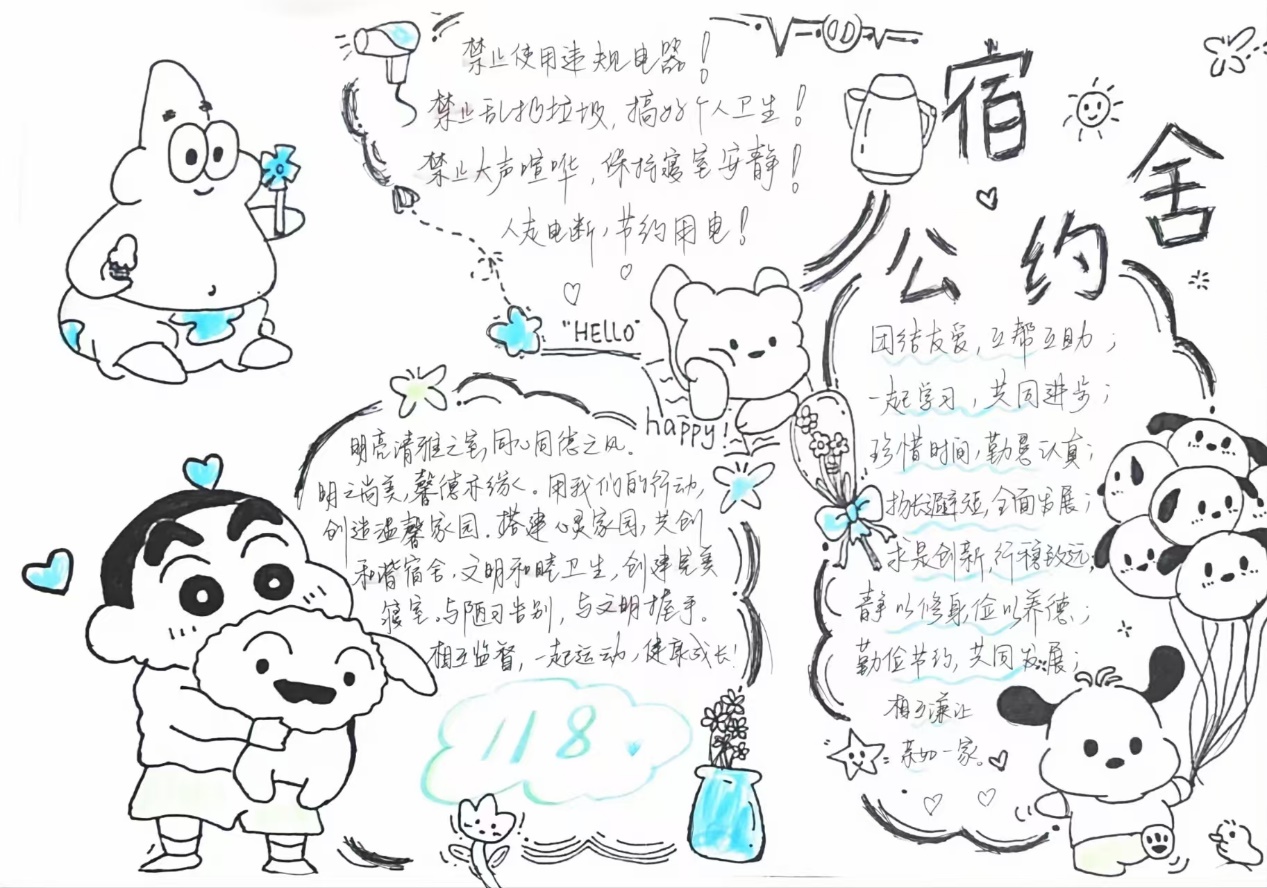 宿舍
公约
禁止使用违规电器!
禁止乱扔垃圾,搞好个人卫生!
禁止大声喧哗,保持寝室安静!
人走电断,节约用电!
"HELLO"
happy!
团结友爱,互帮互助;
一起学习,共同进步;
珍惜时间,勤恳认真;
扬长避短,全面发展;
求是创新,行稳致远;
静以修身,俭以养德;
勤俭节约,共同发展;
相互谦让
亲如一家。
明亮清雅之室,同心同德之风。
明之尚美,馨德亦缘。用我们的行动,
创造温馨家园.搭建心灵家园,共创
和谐宿舍.文明和睦卫生,创建完美
寝室。与陋习告别,与文明握手。
相互监督,一起运动,健康成长!
118